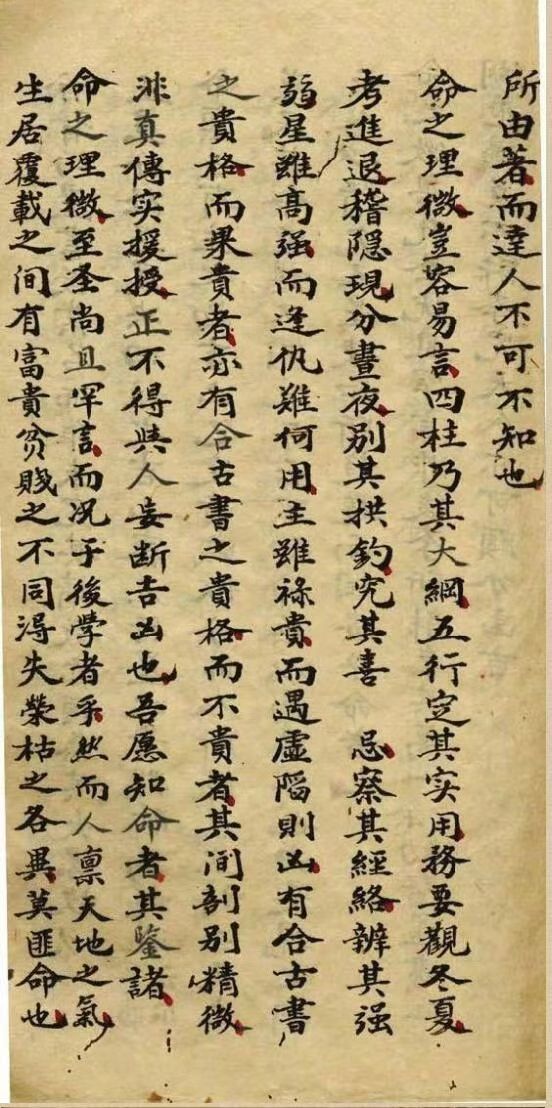 所由著而達人不可不知也
命之理微豈容易言四柱乃其大綱五行定其实用務要觀冬夏
考進退稽隐現分晝夜别其拱鈎究其喜 忌察其經絡辨其强
弱星雖高强而逢仇難何用主雖禄貴而遇虛陷則凶有合古書
之貴格而果貴者亦有合古書之貴格而不貴者其间剖别精微
非真傳实援授正不得與人妄断吉凶也吾愿知命者其鉴諸
命之理微至圣尚且罕言而况于後學者乎然而人禀天地之氣
生居覆載之间有富貴贫賤之不同得失荣枯之各異莫匪命也